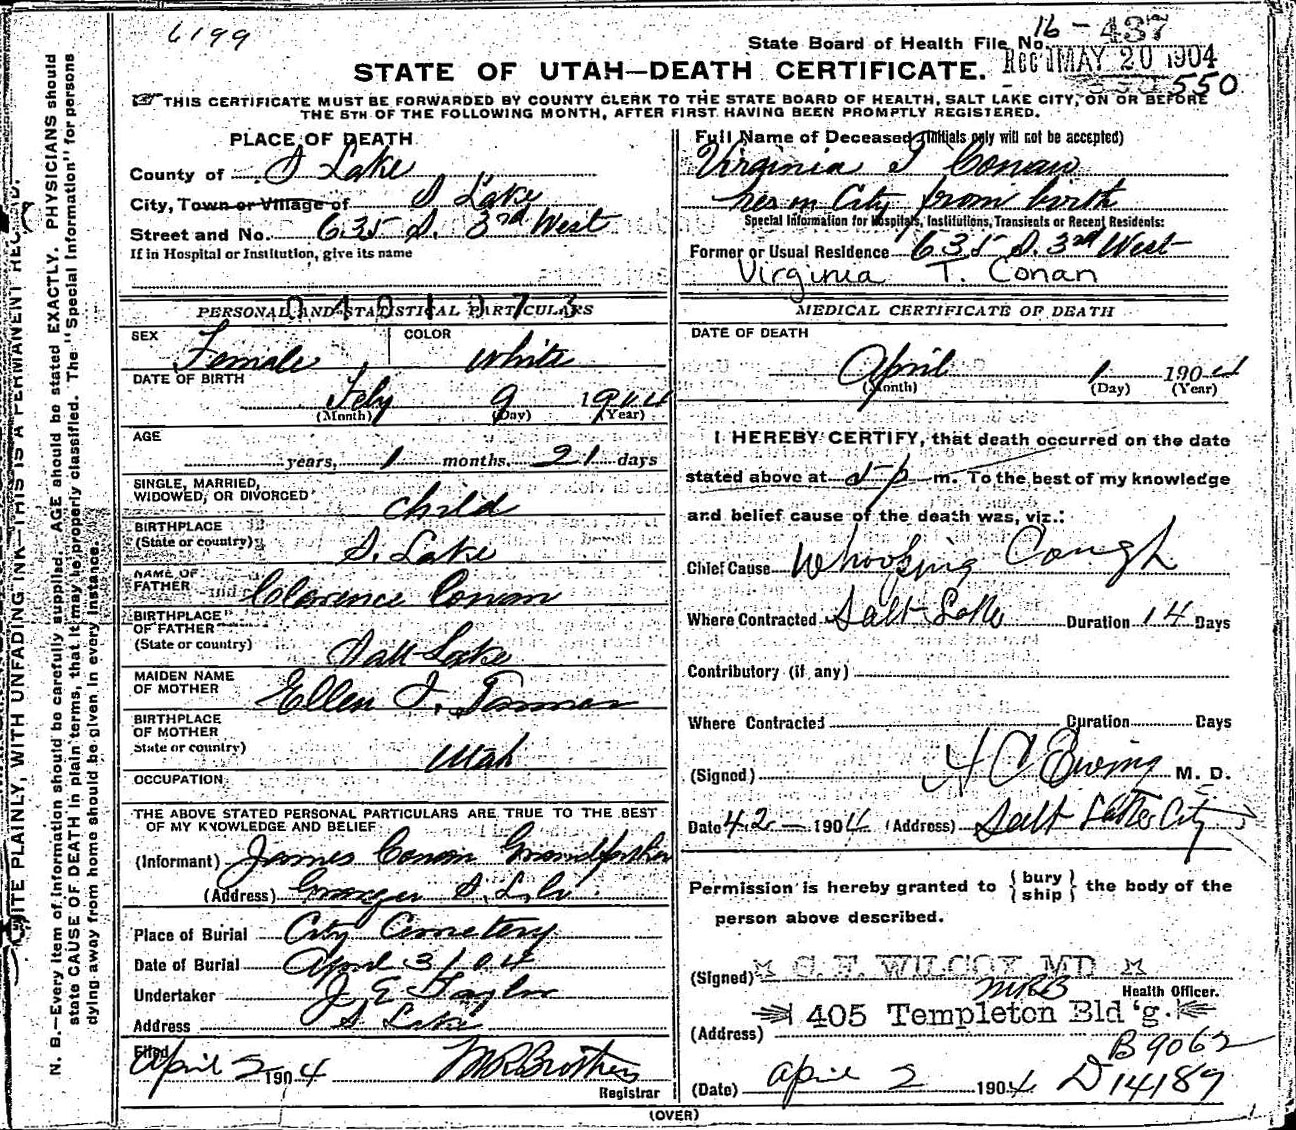 6199
16-437
State Board of Health File No.
REC'D MAY 20 1904
550
STATE OF UTAH—DEATH CERTIFICATE.
THIS CERTIFICATE MUST BE FORWARDED BY COUNTY CLERK TO THE STATE BOARD OF HEALTH, SALT LAKE CITY, ON OR BEFORE
THE 5TH OF THE FOLLOWING MONTH, AFTER FIRST HAVING BEEN PROMPTLY REGISTERED.
PLACE OF DEATH
County of S Lake
City, Town or Village of S Lake
Street and No. 635 S. 3rd West
If in Hospital or Institution, give its name
Full Name of Deceased (Initials only will not be accepted)
Virginia T Conan
res in City from birth
Special Information for Hospitals, Institutions, Transients or Recent Residents:
Former or Usual Residence 635 S. 3rd West
Virginia T. Conan
PERSONAL AND STATISTICAL PARTICULARS
SEX Female
COLOR White
DATE OF BIRTH
Feby 9 1904
(Month) (Day) (Year)
AGE
years, 1 months, 21 days
SINGLE, MARRIED,
WIDOWED, OR DIVORCED child
BIRTHPLACE
(State or country) S. Lake
NAME OF
FATHER Clarence Conan
BIRTHPLACE
OF FATHER
(State or country) Salt Lake
MAIDEN NAME
OF MOTHER Ellen
BIRTHPLACE
OF MOTHER
State or country) Utah
OCCUPATION
THE ABOVE STATED PERSONAL PARTICULARS ARE TRUE TO THE BEST
OF MY KNOWLEDGE AND BELIEF
(Informant) James Conan Grandfather
(Address) Granger S. L. Co.
Place of Burial City Cemetery
Date of Burial April 3/04
Undertaker J E Taylor
Address S Lake
Filed
April 2 1904 M R Brothers
Registrar
MEDICAL CERTIFICATE OF DEATH
DATE OF DEATH
April 1 1904
(Month) (Day) (Year)
I HEREBY CERTIFY, that death occurred on the date
stated above at 5 p m. To the best of my knowledge
and belief cause of the death was, viz.:
Chief Cause Whooping Cough
Where Contracted Salt Lake Duration 14 Days
Contributory (if any)
Where Contracted Duration Days
(Signed) H C Ewing M. D.
Date 4 2 - 1904 (Address) Salt Lake City
Permission is hereby granted to { bury ship } the body of the
person above described.
(Signed) C. F. WILCOX MD
MRB Health Officer.
(Address) 405 Templeton Bld'g.
B 9062
(Date) April 2 1904 D 14189
(OVER)
WRITE PLAINLY, WITH UNFADING INK—THIS IS A PERMANENT RECORD.
N. B.—Every item of information should be carefully supplied. AGE should be stated EXACTLY. PHYSICIANS should
state CAUSE OF DEATH in plain terms, that it may be properly classified. The "Special Information" for persons
dying away from home should be given in every instance.